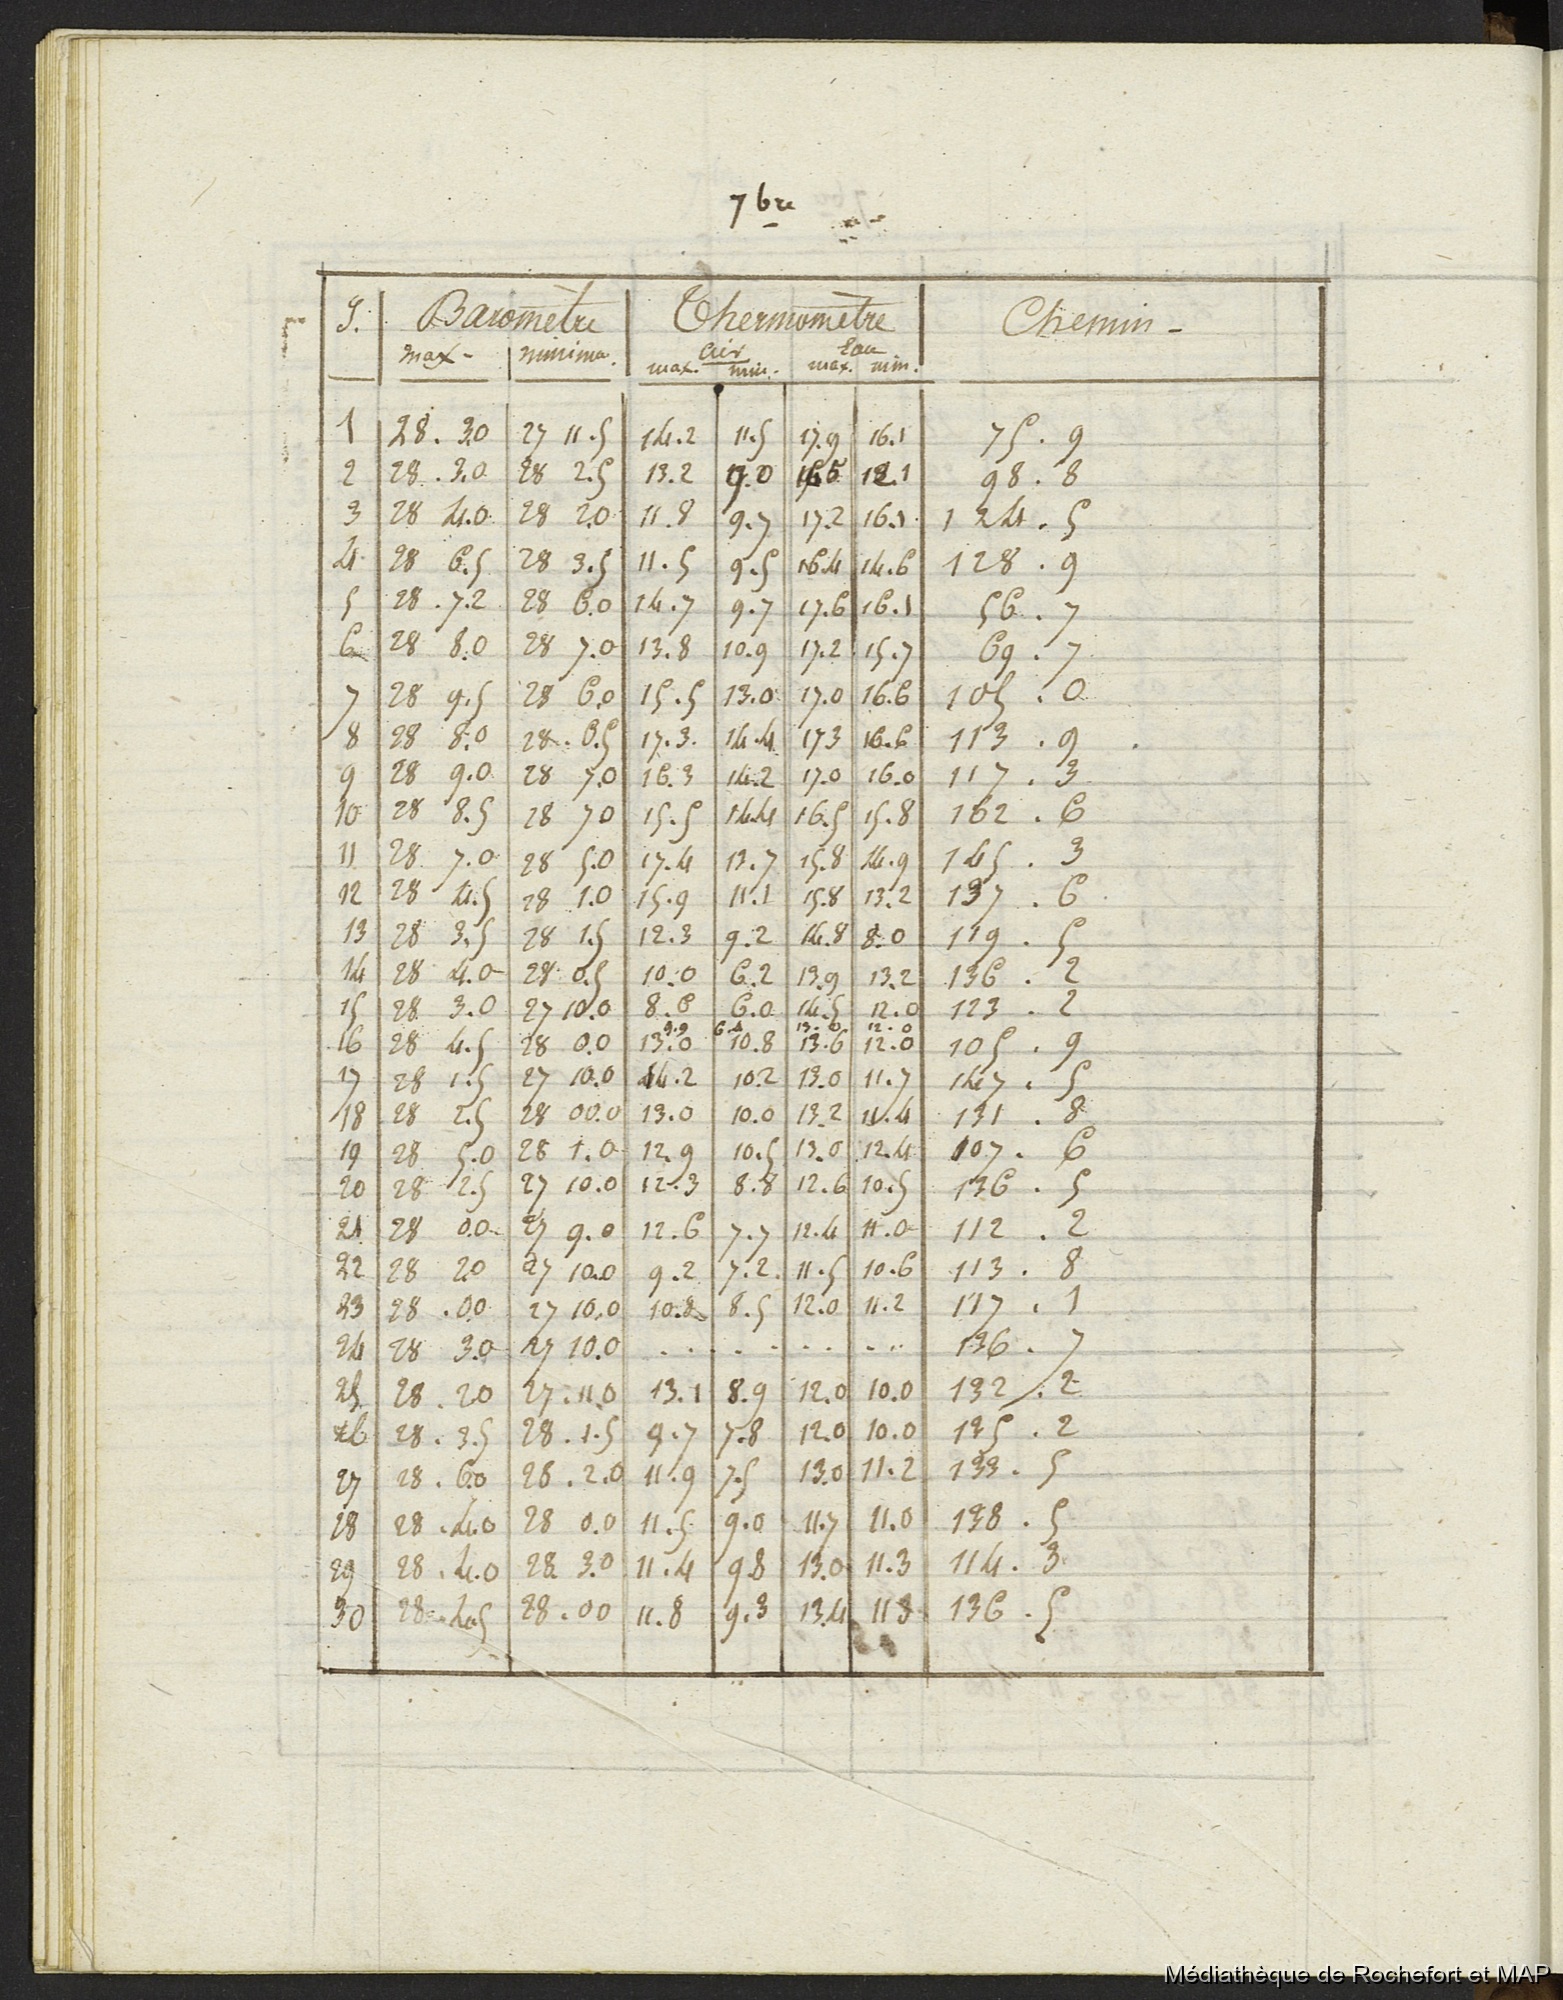 7bre
J. Baromètre Thermomètre Chemin -
max - minima. Air Eau
max. min. max. min.
1 28. 3.0 27 11.5 14.2 11.5 17.9 16.1 75. 9
2 28. 3.0 28 2.5 13.2 9.0 16.5 12.1 98. 8
3 28 4.0 28 2.0 11.8 9.7 17.2 16.1 124. 5
4 28 6.5 28 3.5 11.5 9.5 16.4 14.6 128. 9
5 28. 7.2 28 6.0 14.7 9.7 17.6 16.1 56. 7
6 28 8.0 28 7.0 13.8 10.9 17.2 15.7 69. 7
7 28 9.5 28 6.0 15.5 13.0 17.0 16.6 105. 0
8 28 8.0 28. 6.5 17.3. 14.4 17.3 16.6 113. 9
9 28 9.0 28 7.0 16.3 14.2 17.0 16.0 117. 3
10 28 8.5 28 7.0 15.5 14.4 16.5 15.8 162. 6
11 28 7.0 28 5.0 17.4 13.7 15.8 14.9 145. 3
12 28 4.5 28 1.0 15.9 11.1 15.8 13.2 137. 6
13 28 3.5 28 1.5 12.3 9.2 14.8 8.0 119. 5
14 28 4.0 28 0.5 10.0 6.2 13.9 13.2 136. 2
15 28 3.0 27 10.0 8.6 6.0 14.5 12.0 123. 2
9.9 13.0 12.0
16 28 4.5 28 0.0 13.0 10.8 13.6 12.0 105. 9
17 28 1.5 27 10.0 14.2 10.2 13.0 11.7 147. 5
18 28 2.5 28 00.0 13.0 10.0 13.2 11.4 131. 8
19 28 5.0 28 1.0 12.9 10.5 13.0 12.4 107. 6
20 28 2.5 27 10.0 12.3 8.8 12.6 10.5 136. 5
21 28 0.0 27 9.0 12.6 7.7 12.4 11.0 112. 2
22 28 2.0 27 10.0 9.2 7.2. 11.5 10.6 113. 8
23 28. 0.0 27 10.0 10.8 8.5 12.0 11.2 117. 1
24 28 3.0 27 10.0 . . . . . . . . . 136. 7
25 28. 2.0 27. 11.0 13.1 8.9 12.0 10.0 132. 2
26 28. 3.5 28. 1.5 9.7 7.8 12.0 10.0 135. 2
27 28. 6.0 28. 2.0 11.9 7.5 13.0 11.2 133. 5
28 28. 4.0 28 0.0 11.5 9.0 11.7 11.0 138. 5
29 28. 4.0 28. 3.0 11.4 9.8 13.0 11.3 114. 3
30 28. 4.5 28. 0 0 11.8 9.3 13.4 11 3 136. 5
Médiathèque de Rochefort et MAP